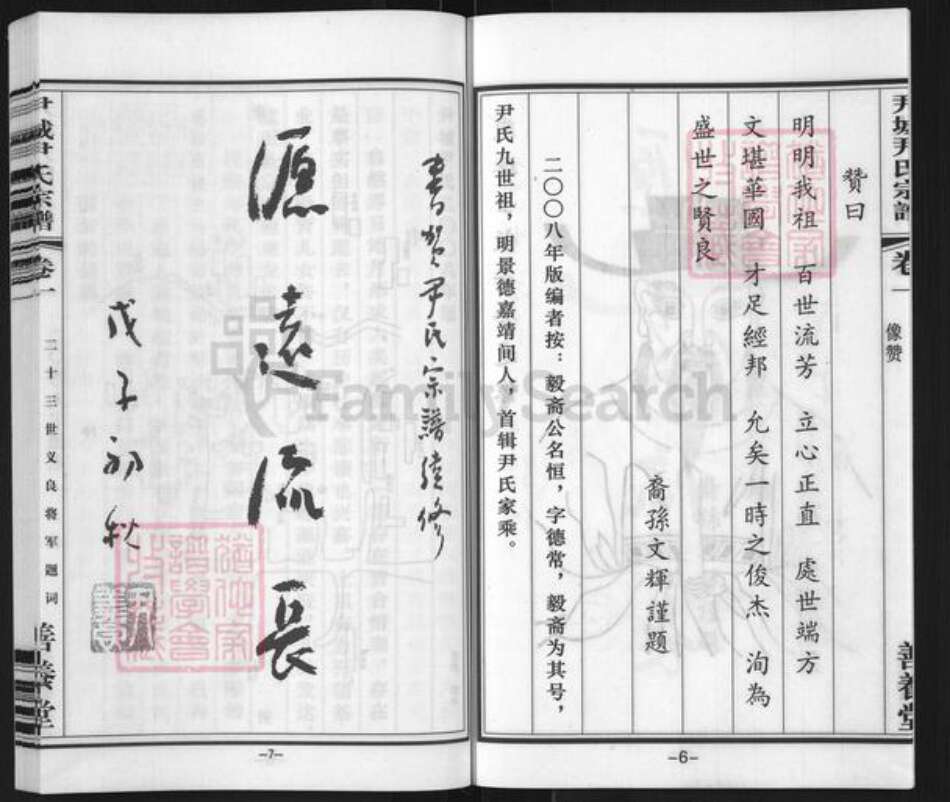 尹城尹氏宗譜
卷一
像赞
善養堂
赞曰
明明我祖 百世流芳 立心正直 處世端方
文堪華國 才足經邦 允矣一時之俊杰 洵為
盛世之賢良
裔孫文輝謹題
二〇〇八年版编者按：毅斋公名恒，字德常，毅斋为其号，
尹氏九世祖，明景德嘉靖间人，首辑尹氏家乘。
-6-
書贺尹氏宗譜續修
源遠流長
戊子初秋
尹城尹氏宗譜
卷一
二十三世义良将军题词
善養堂
-7-
FamilySearch